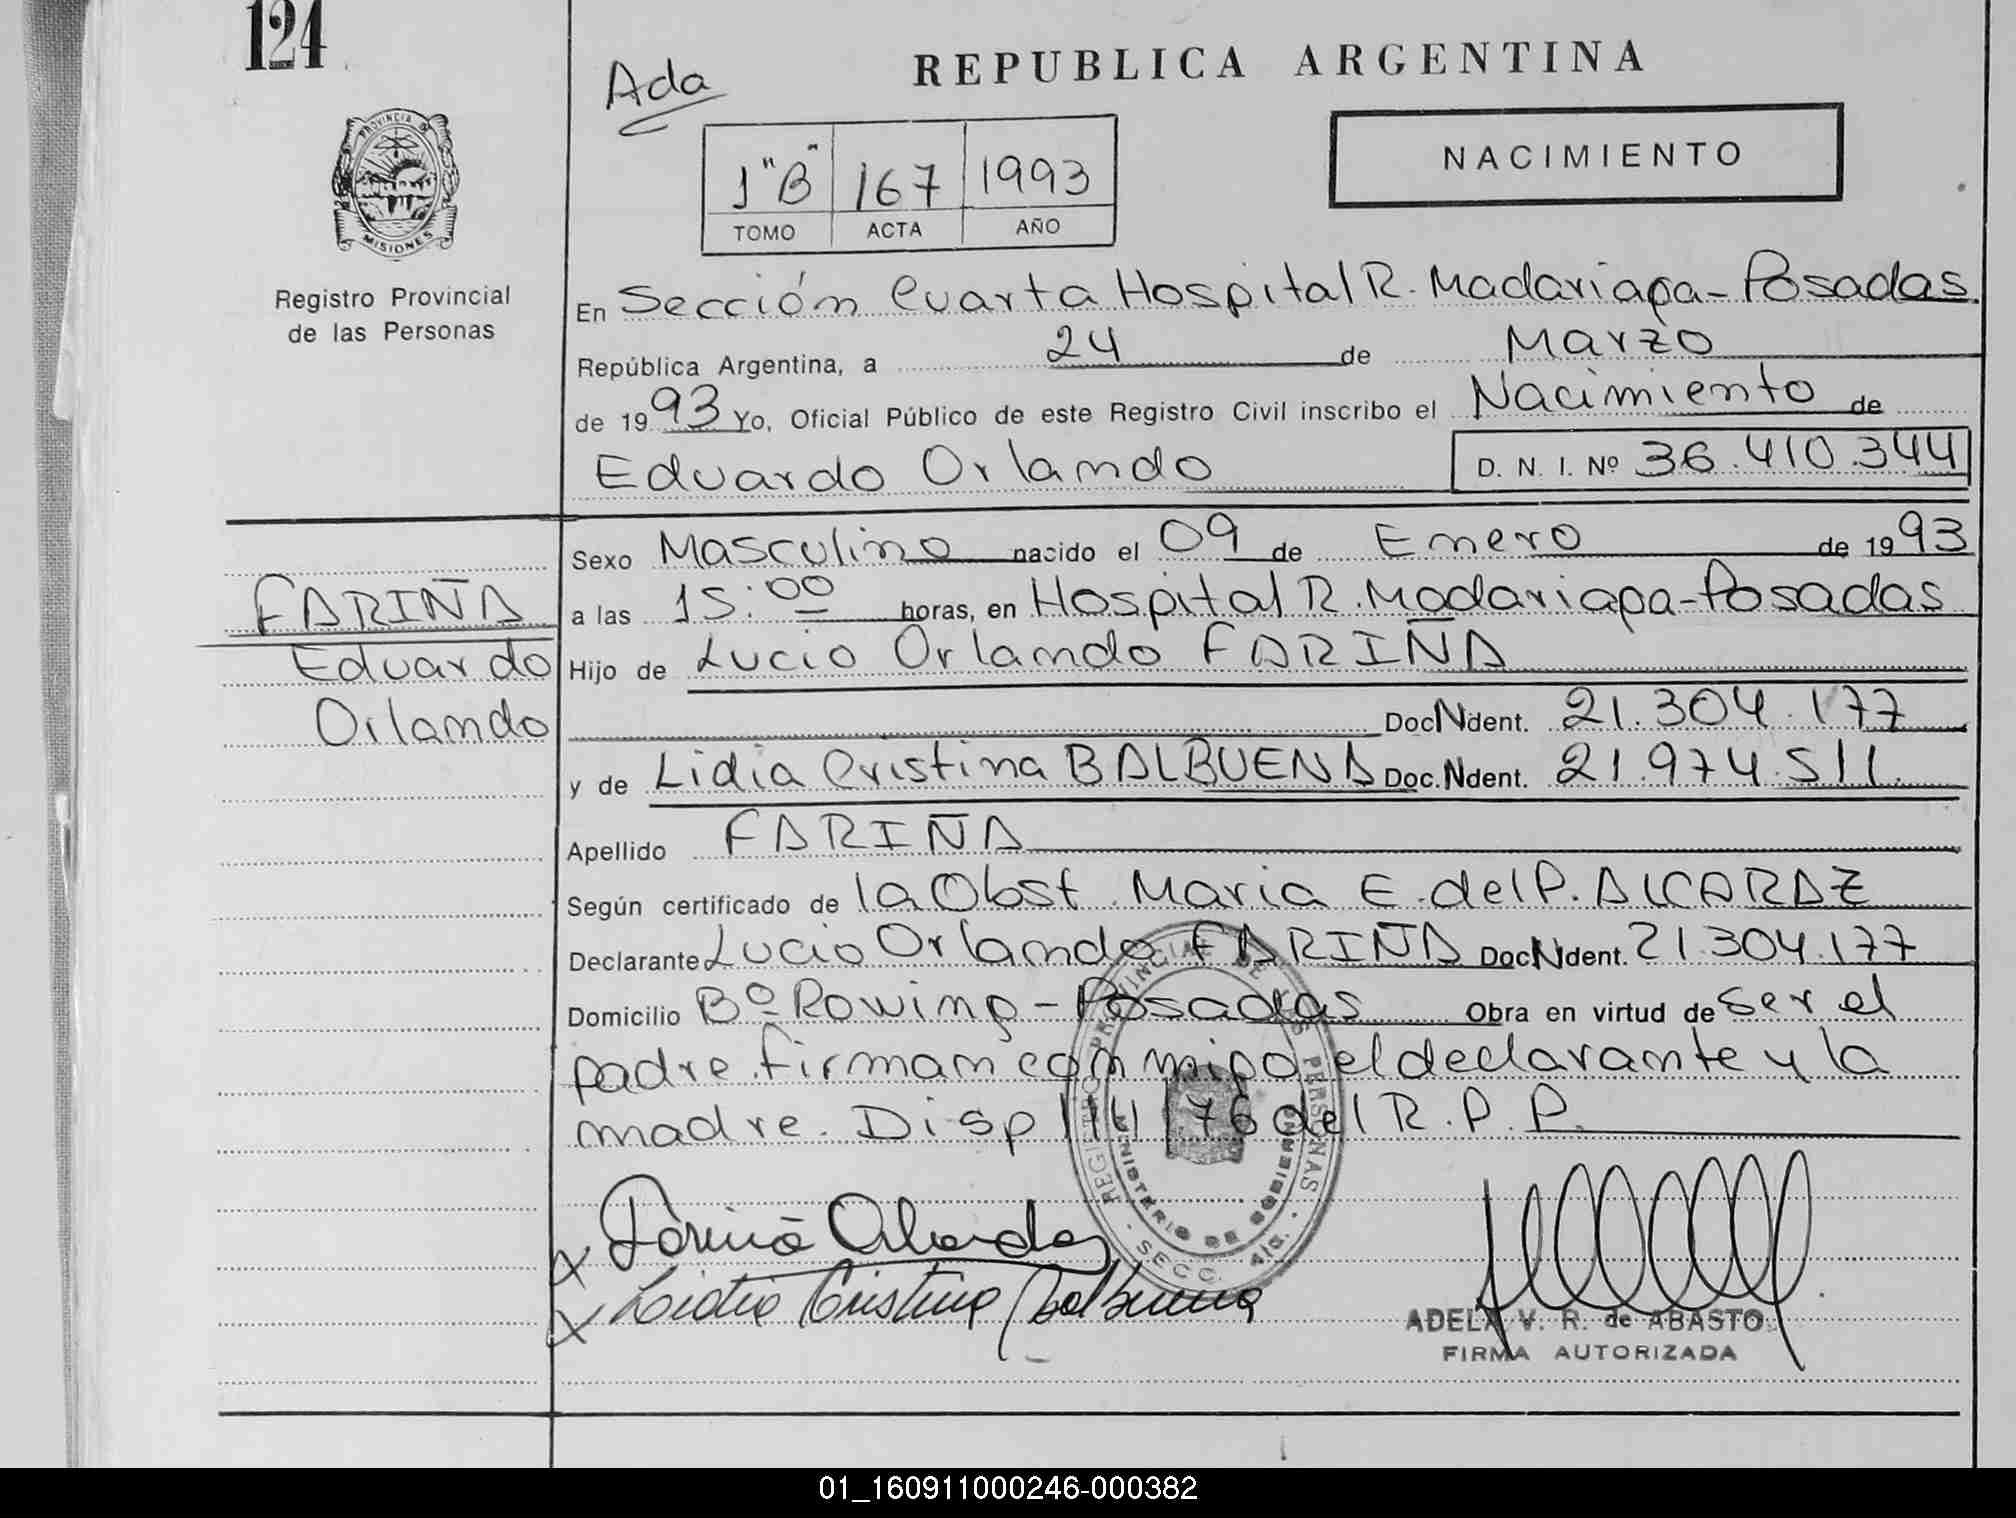 124
REPUBLICA ARGENTINA
Ada
NACIMIENTO
1 "B" 167 1993
TOMO ACTA AÑO
PROVINCIA DE
MISIONES
Registro Provincial
de las Personas
En Sección Cuarta Hospital R. Madariaga - Posadas
República Argentina, a 24 de Marzo
de 1993 Yo, Oficial Público de este Registro Civil inscribo el Nacimiento de
Eduardo Orlando D. N. I. Nº 36.410.344
Sexo Masculino nacido el 09 de Enero de 1993
a las 15:00 horas, en Hospital R. Madariaga - Posadas
Hijo de Lucio Orlando FARIÑA
Doc Ndent. 21.304.177
y de Lidia Cristina BALBUENA Doc. Ndent. 21.974.511
Apellido FARIÑA
Según certificado de la Obst. Maria E. del P. ALCARAZ
Declarante Lucio Orlando FARIÑA Doc Ndent. 21.304.177
Domicilio Bº Rowing - Posadas Obra en virtud de Ser el
padre. firman conmigo el declarante y la
madre. Disp 114 76 del R. P. P.
FARIÑA
Eduardo
Orlando
REGISTRO PROVINCIAL DE LAS PERSONAS
MINISTERIO DE GOBIERNO
SECC. 4ta.
x Fariña Orlando
x Lidia Cristina Balbuena
ADELA V. R. de ABASTO
FIRMA AUTORIZADA
01_160911000246-000382